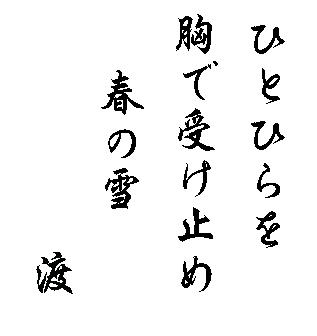 ひとひらを
胸で受け止め
春の雪
渡